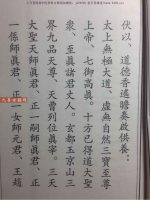 伏以、道德香遠瞻奏啟供養⋯
太上無極大道、虛無自然三寶至尊
上帝、七御高真。十方已得道大聖
眾、至真諸君丈人。玄都玉京山三
界九品天尊、天曹列位真宰。三天
大聖天師真君、正一嗣師真君、正
一係師真君、正一女師元君、王趙